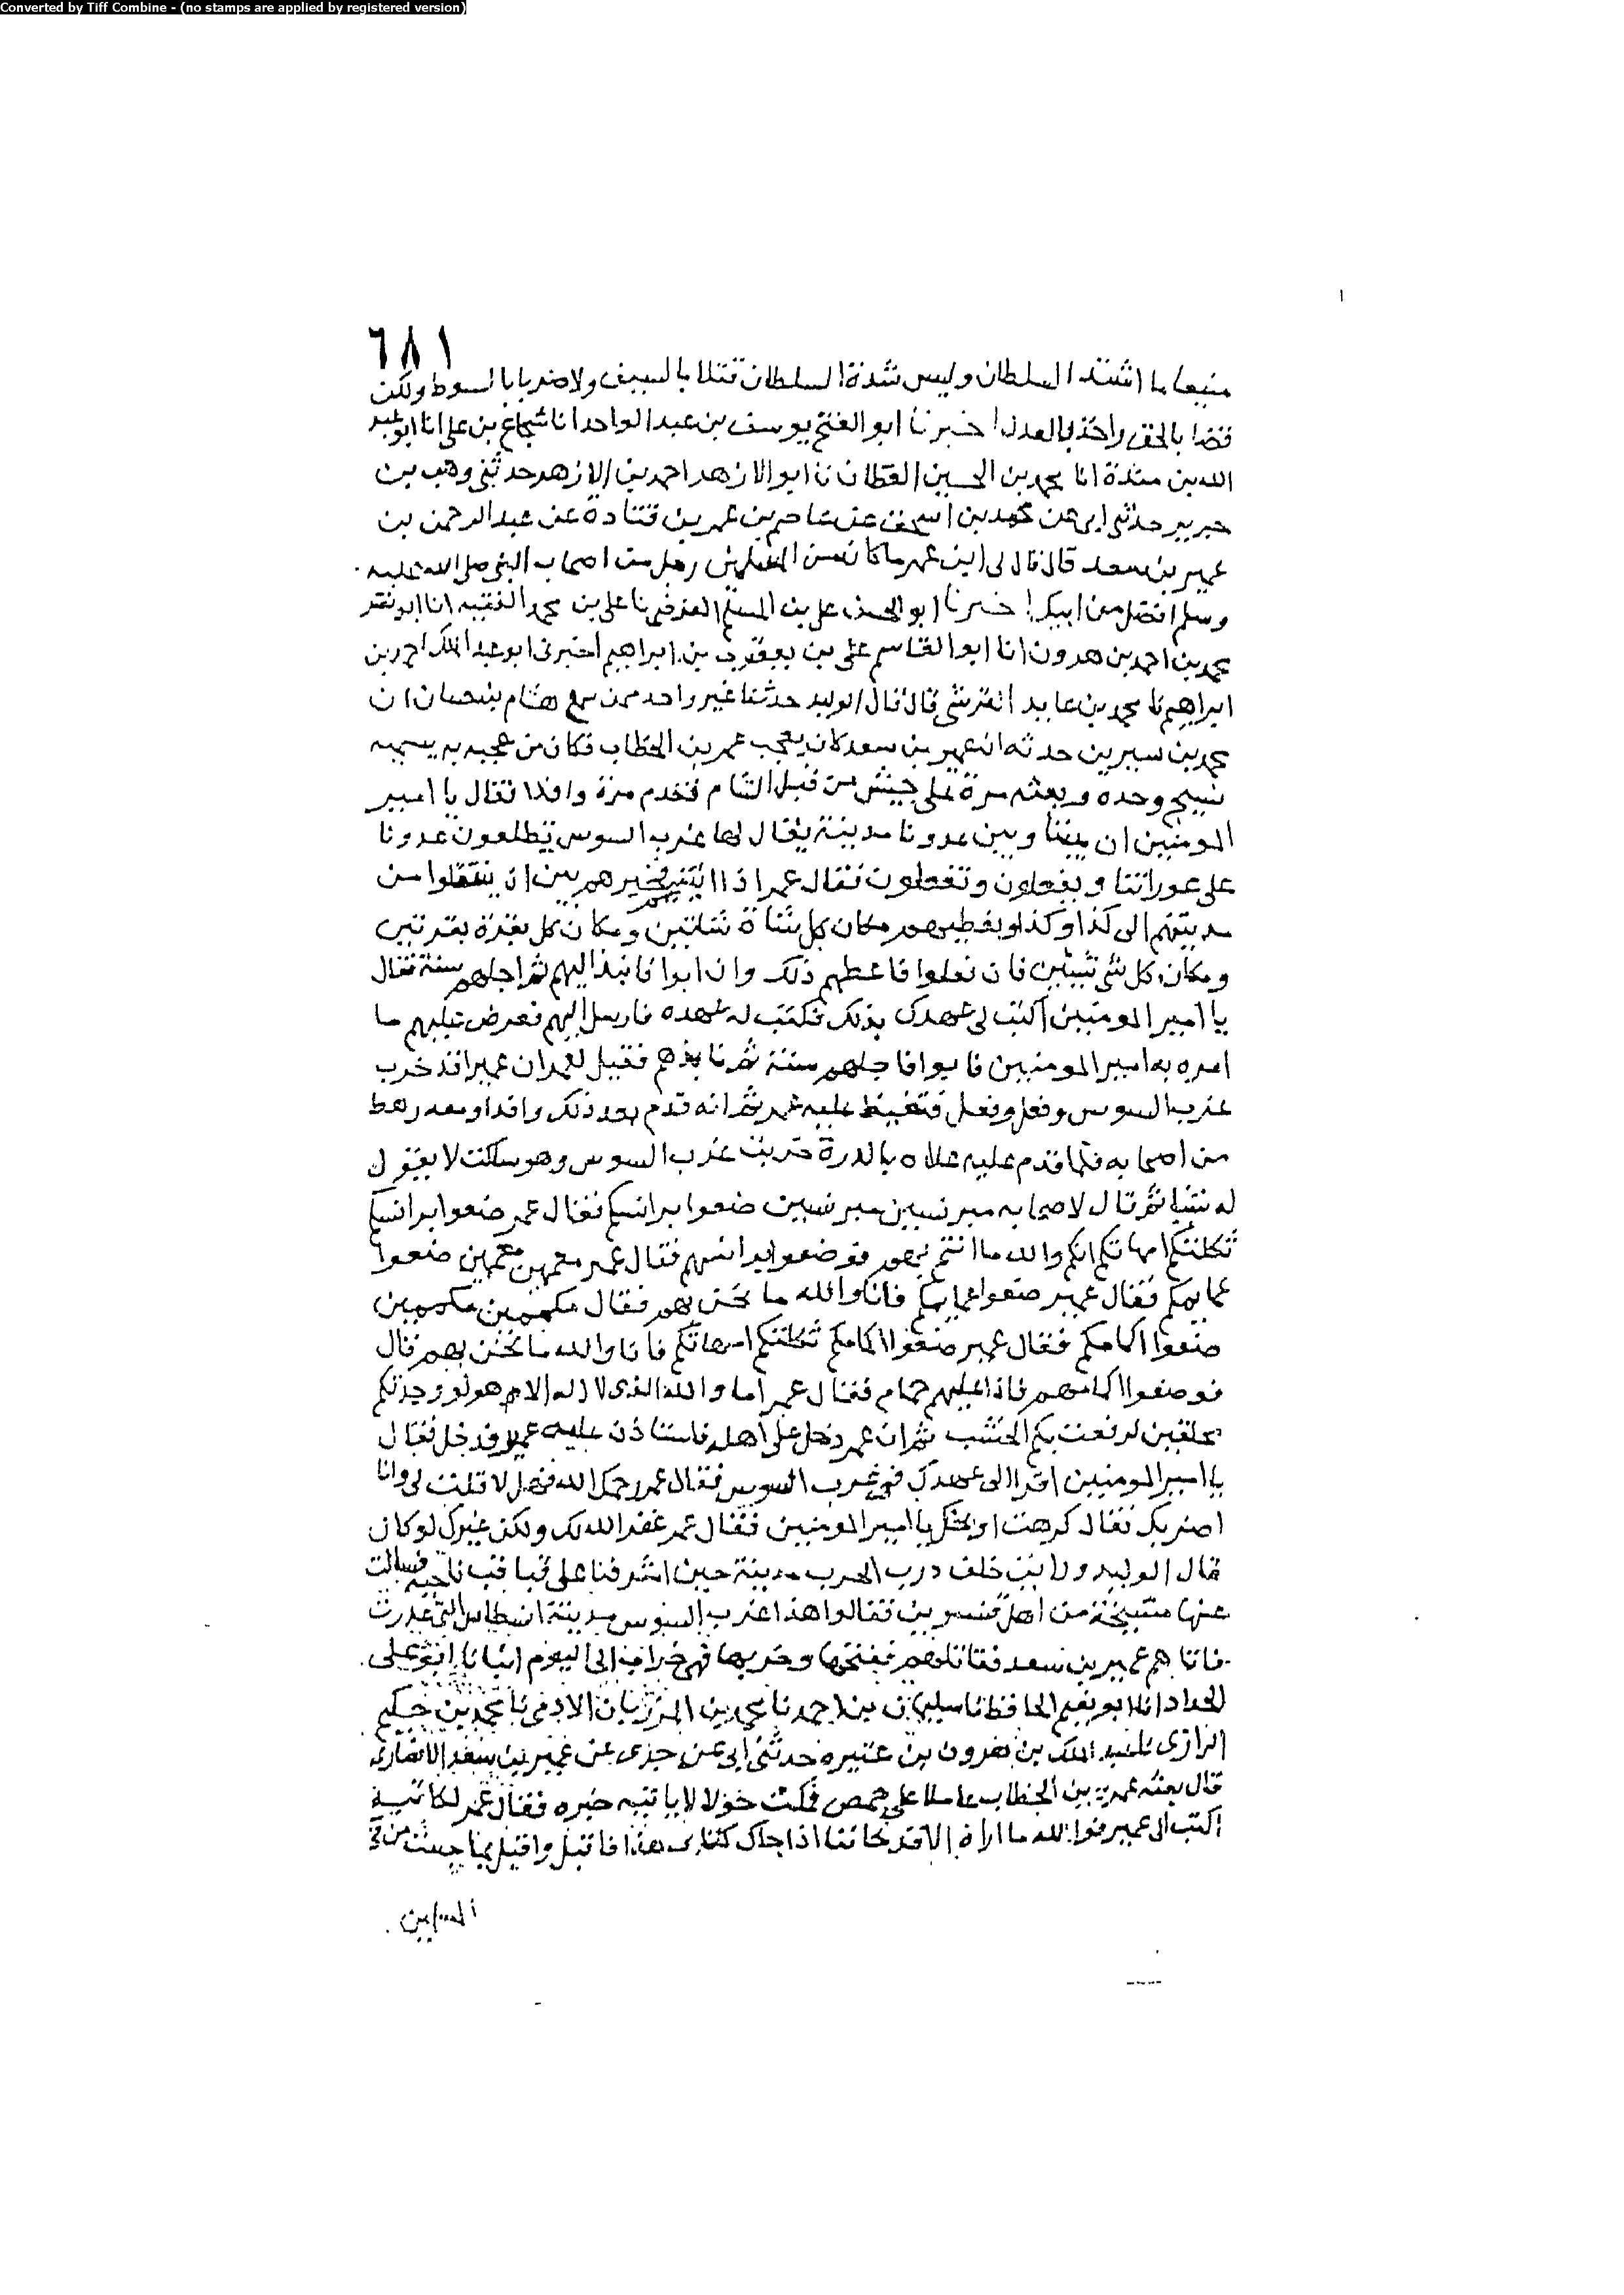 Converted by Tiff Combine - (no stamps are applied by registered version)
١
٦٨١
منيعا ما اشتد السلطان وليس شدة السلطان قتلا بالسيف ولا ضربا بالسوط ولكن
قضا بالحق واخذ بالعدل اخبرنا ابو الفتح يوسف بن عبد الواحد انا شجاع بن علي انا ابو عبد
الله بن مندة انا محمد بن الحسين القطان نا ابو الازهر احمد بن الازهر حدثني وهب بن
جرير حدثني ابي عن محمد بن اسحق عن عاصم بن عمر بن قتادة عن عبد الرحمن بن
عمير بن سعد قال قال لي ابن عمر ما كان من المسلمين رجل من اصحاب النبي صلى الله عليه
وسلم افضل من ابيك اخبرنا ابو الحسن علي بن المسلم الفرضي نا علي بن محمد الفقيه انا ابو نصر
محمد بن احمد بن هرون انا ابو القاسم علي بن يعقوب بن ابراهيم اخبرني ابو عبد الملك احمد بن
ابراهيم نا محمد بن عايد القرشي قال قال الوليد حدثنا غير واحد ممن سمع هشام بن حسان ان
محمد بن سيرين حدثه ان عمير بن سعد كان يعجب عمر بن الخطاب فكان من عجبه به يسميه
نسيج وحده وبعثه مرة على جيش من قبل الشام فقدم مرة وافدا فقال يا امير
المومنين ان بيننا وبين عدونا مدينة يقال لها عرب السوس يطلعون عدونا
على عوراتنا ويفعلون وتفعلون فقال عمر اذا اتيتهم فخيرهم بين ان ينتقلوا من
مدينتهم الى كذا وكذا ويعطيهم مكان كل شاة شاتين ومكان كل بقرة بقرتين
ومكان كل شي شيئين فان فعلوا فاعطهم ذلك وان ابوا فانبذ اليهم ثم اجلهم سنة فقال
يا امير المومنين اكتب لي عهدك بذلك فكتب له عهده فارسل اليهم فعرض عليهم ما
امره به امير المومنين فابوا فاجلهم سنة ثم نابذهم فقيل لعمر ان عميرا قد خرب
عرب السوس وفعل وفعل فتغيظ عليه عمر ثم انه قدم بعد ذلك وافدا ومعه رهط
من اصحابه فلما قدم عليه علاه بالدرة خربت عرب السوس وهو ساكت لا يقول
له شيا ثم قال لاصحابه مبرنسين مبرنسين ضعوا برانسكم فقال عمير ضعوا برانسكم
ثكلتكم امهاتكم انكم والله ما انتم بهم فوضعوا برانسهم فقال عمر معممين معممين ضعوا
عمايمكم فقال عمير ضعوا عمايمكم فانا والله ما نحن بهم فقال مكممين مكممين
ضعوا اكمامكم فقال عمير ضعوا اكمامكم ثكلتكم امهاتكم فانا والله ما نحن بهم قال
فوضعوا اكمامهم فاذا عليهم جمام فقال عمر اما والله الذي لا اله الا هو لو وجدتكم
محلقين لرفعت بكم الخشب ثم ان عمر دخل على اهله فاستاذن عليه عمير فدخل فقال
يا امير المومنين اقرا الى عهدك في عرب السوس فقال عمر رحمك الله فهلا قلت لي وانا
اضربك فقال كرهت اوبخك يا امير المومنين فقال عمر غفر الله لك ولكن غيرك لو كان
قال الوليد ورايت خلف درب الحرب مدينة حين اشرفنا على قباقب ناحية فسالت
عنها مشيخة من اهل قنسرين فقالوا هذا عرب السوس مدينة انسطاس التي غدرت
فاتاهم عمير بن سعد فقاتلهم ففتحها وخربها فهي خراب الى اليوم انبانا ابو علي
الحداد انا ابو نعيم الحافظ نا سليمان بن احمد نا محمد بن المرزبان الادمي نا محمد بن حكيم
الرازي نا عبد الملك بن هرون بن عنتره حدثني ابي عن جدي عن عمير بن سعد الانصاري
قال بعثه عمر بن الخطاب عاملا على حمص فمكث حولا لا ياتيه خبره فقال عمر لكاتبه
اكتب الى عمير فوالله ما اراه الا قد خاننا اذا جاك كتابي هذا فاقبل واقبل بما جبيت من في
المسلمين